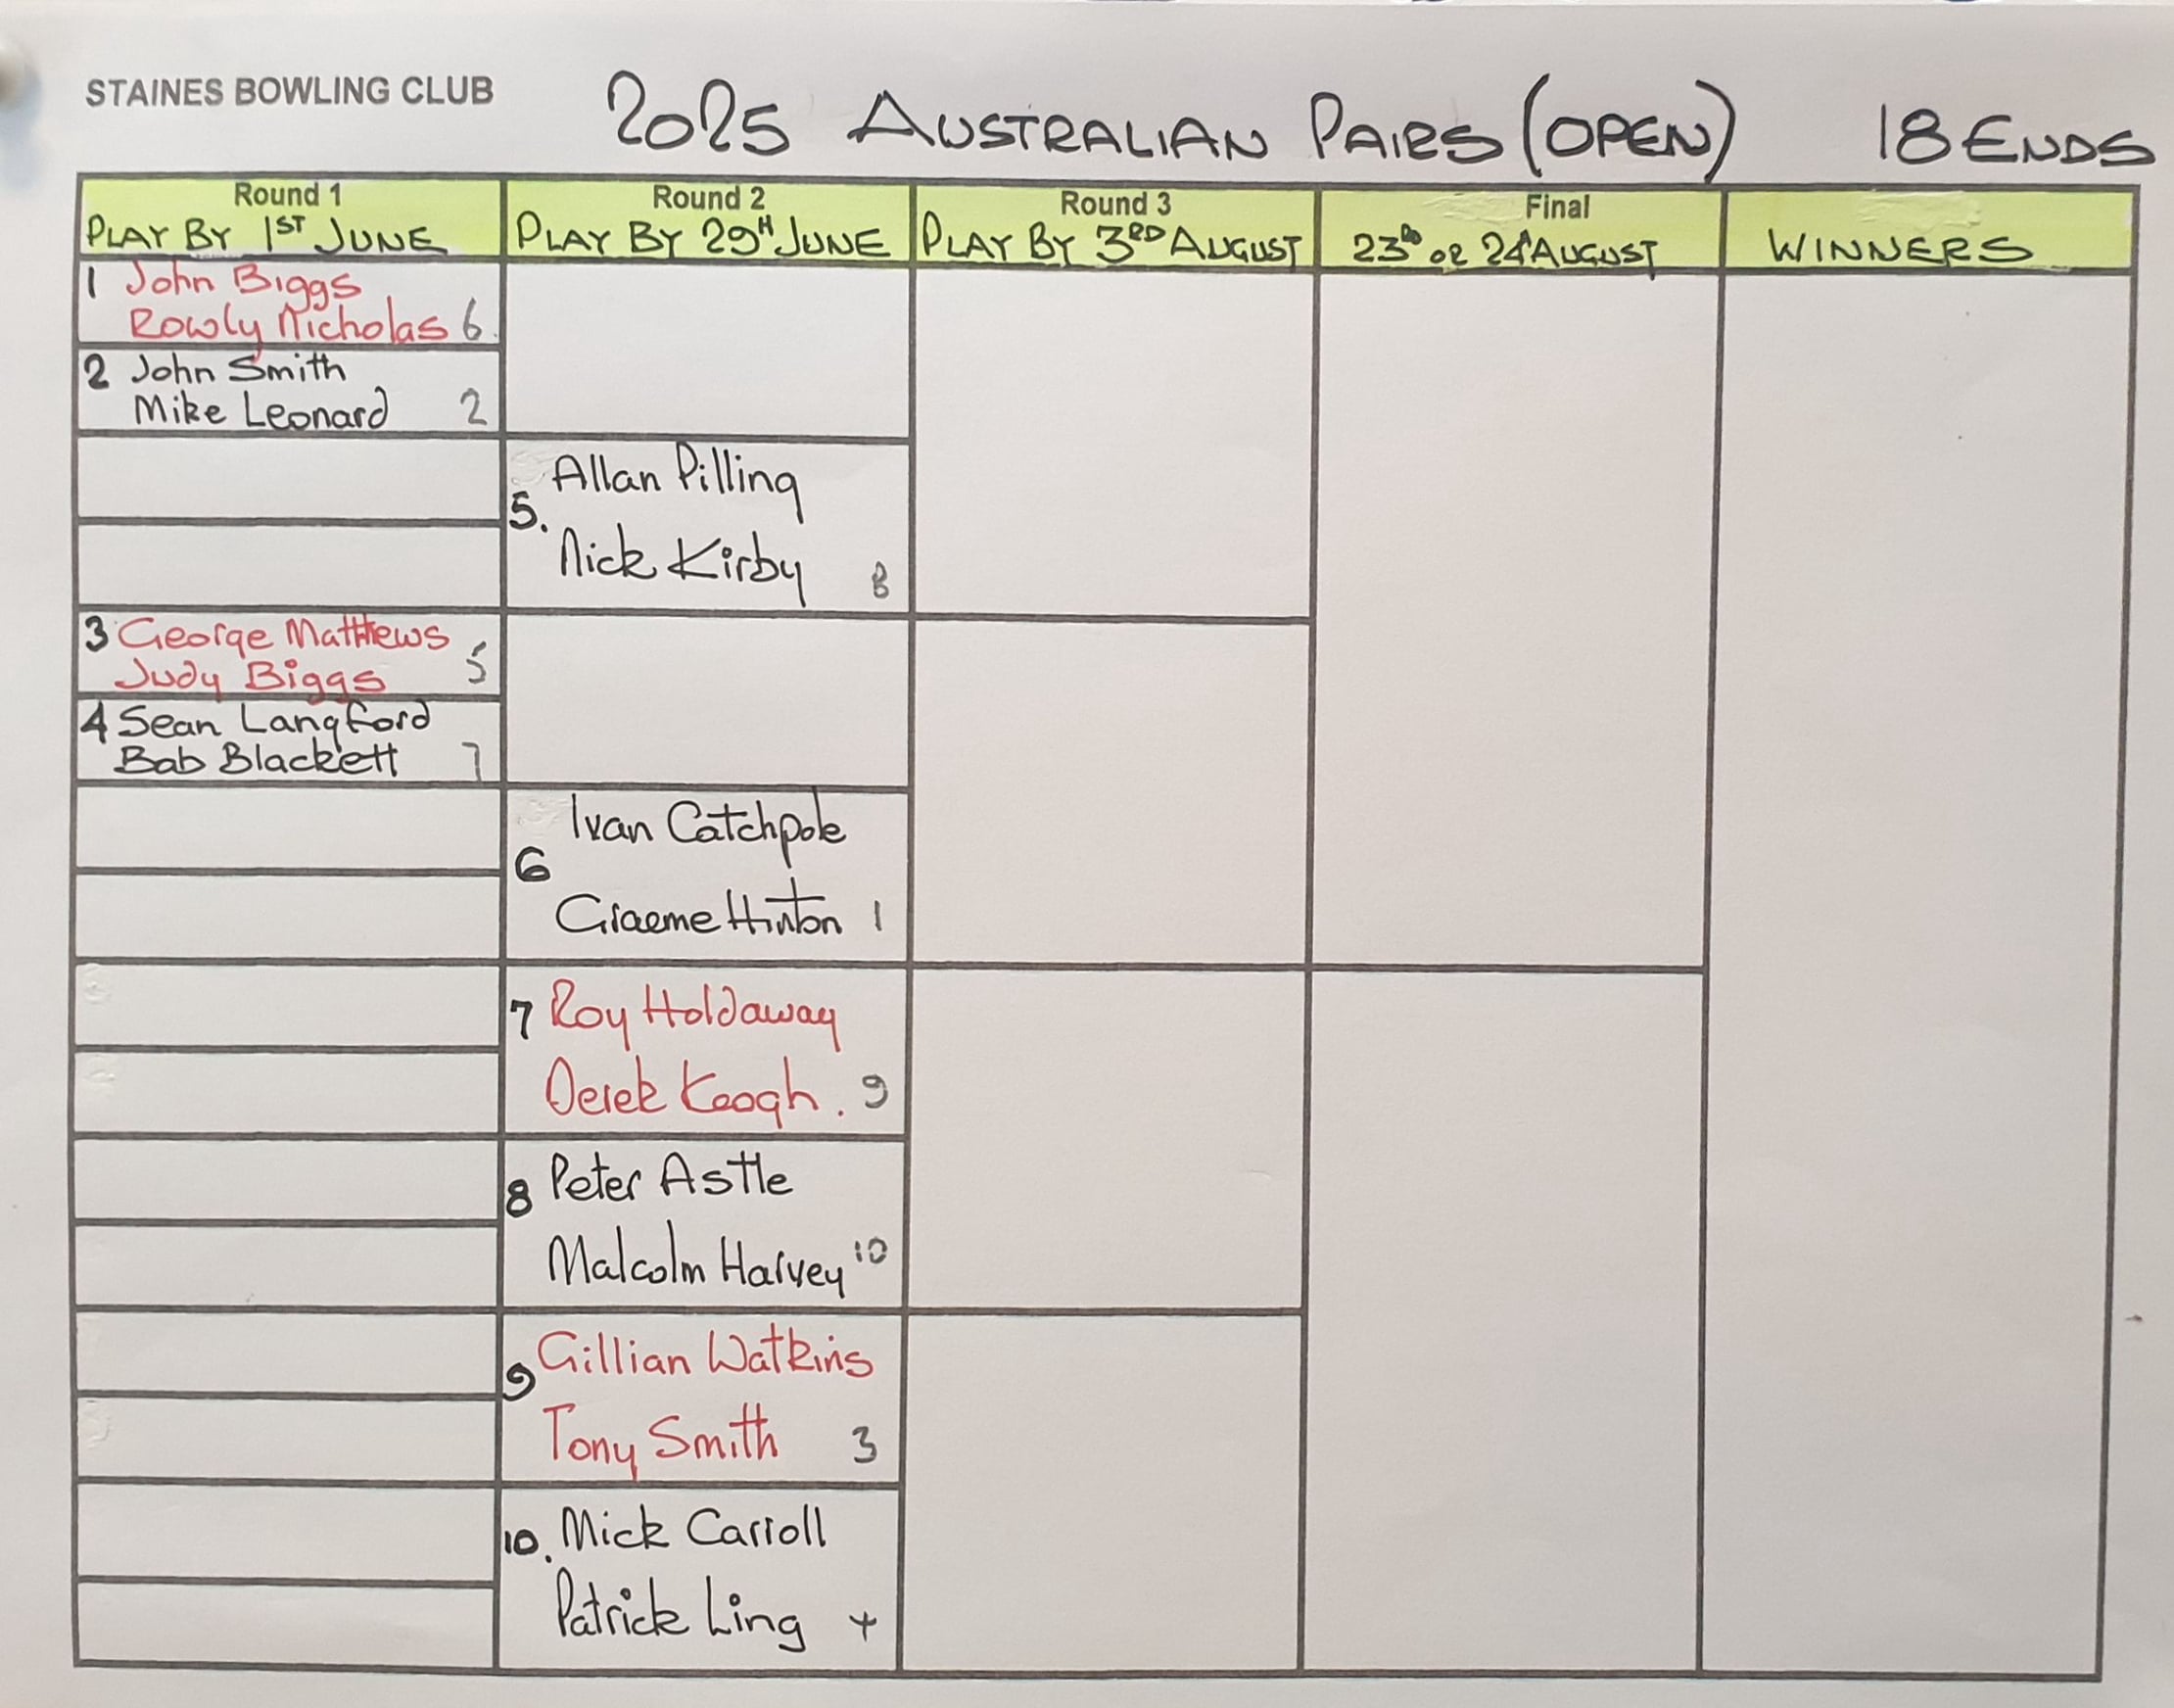 STAINES BOWLING CLUB
2025 AUSTRALIAN PAIRS (OPEN) 18 ENDS
Round 1
PLAY BY 1ST JUNE
Round 2
PLAY BY 29TH JUNE
Round 3
PLAY BY 3RD AUGUST
Final
23RD OR 24TH AUGUST
WINNERS
1 John Biggs
Rowly Nicholas 6
2 John Smith
Mike Leonard 2
5. Allan Pilling
Nick Kirby 8
3 George Matthews
Judy Biggs 5
4 Sean Langford
Bab Blackett 7
6 Ivan Catchpole
Graeme Hinton 1
7 Roy Holdaway
Derek Keogh. 9
8 Peter Astle
Malcolm Harvey 10
9 Gillian Watkins
Tony Smith 3
10. Mick Carroll
Patrick Ling 4